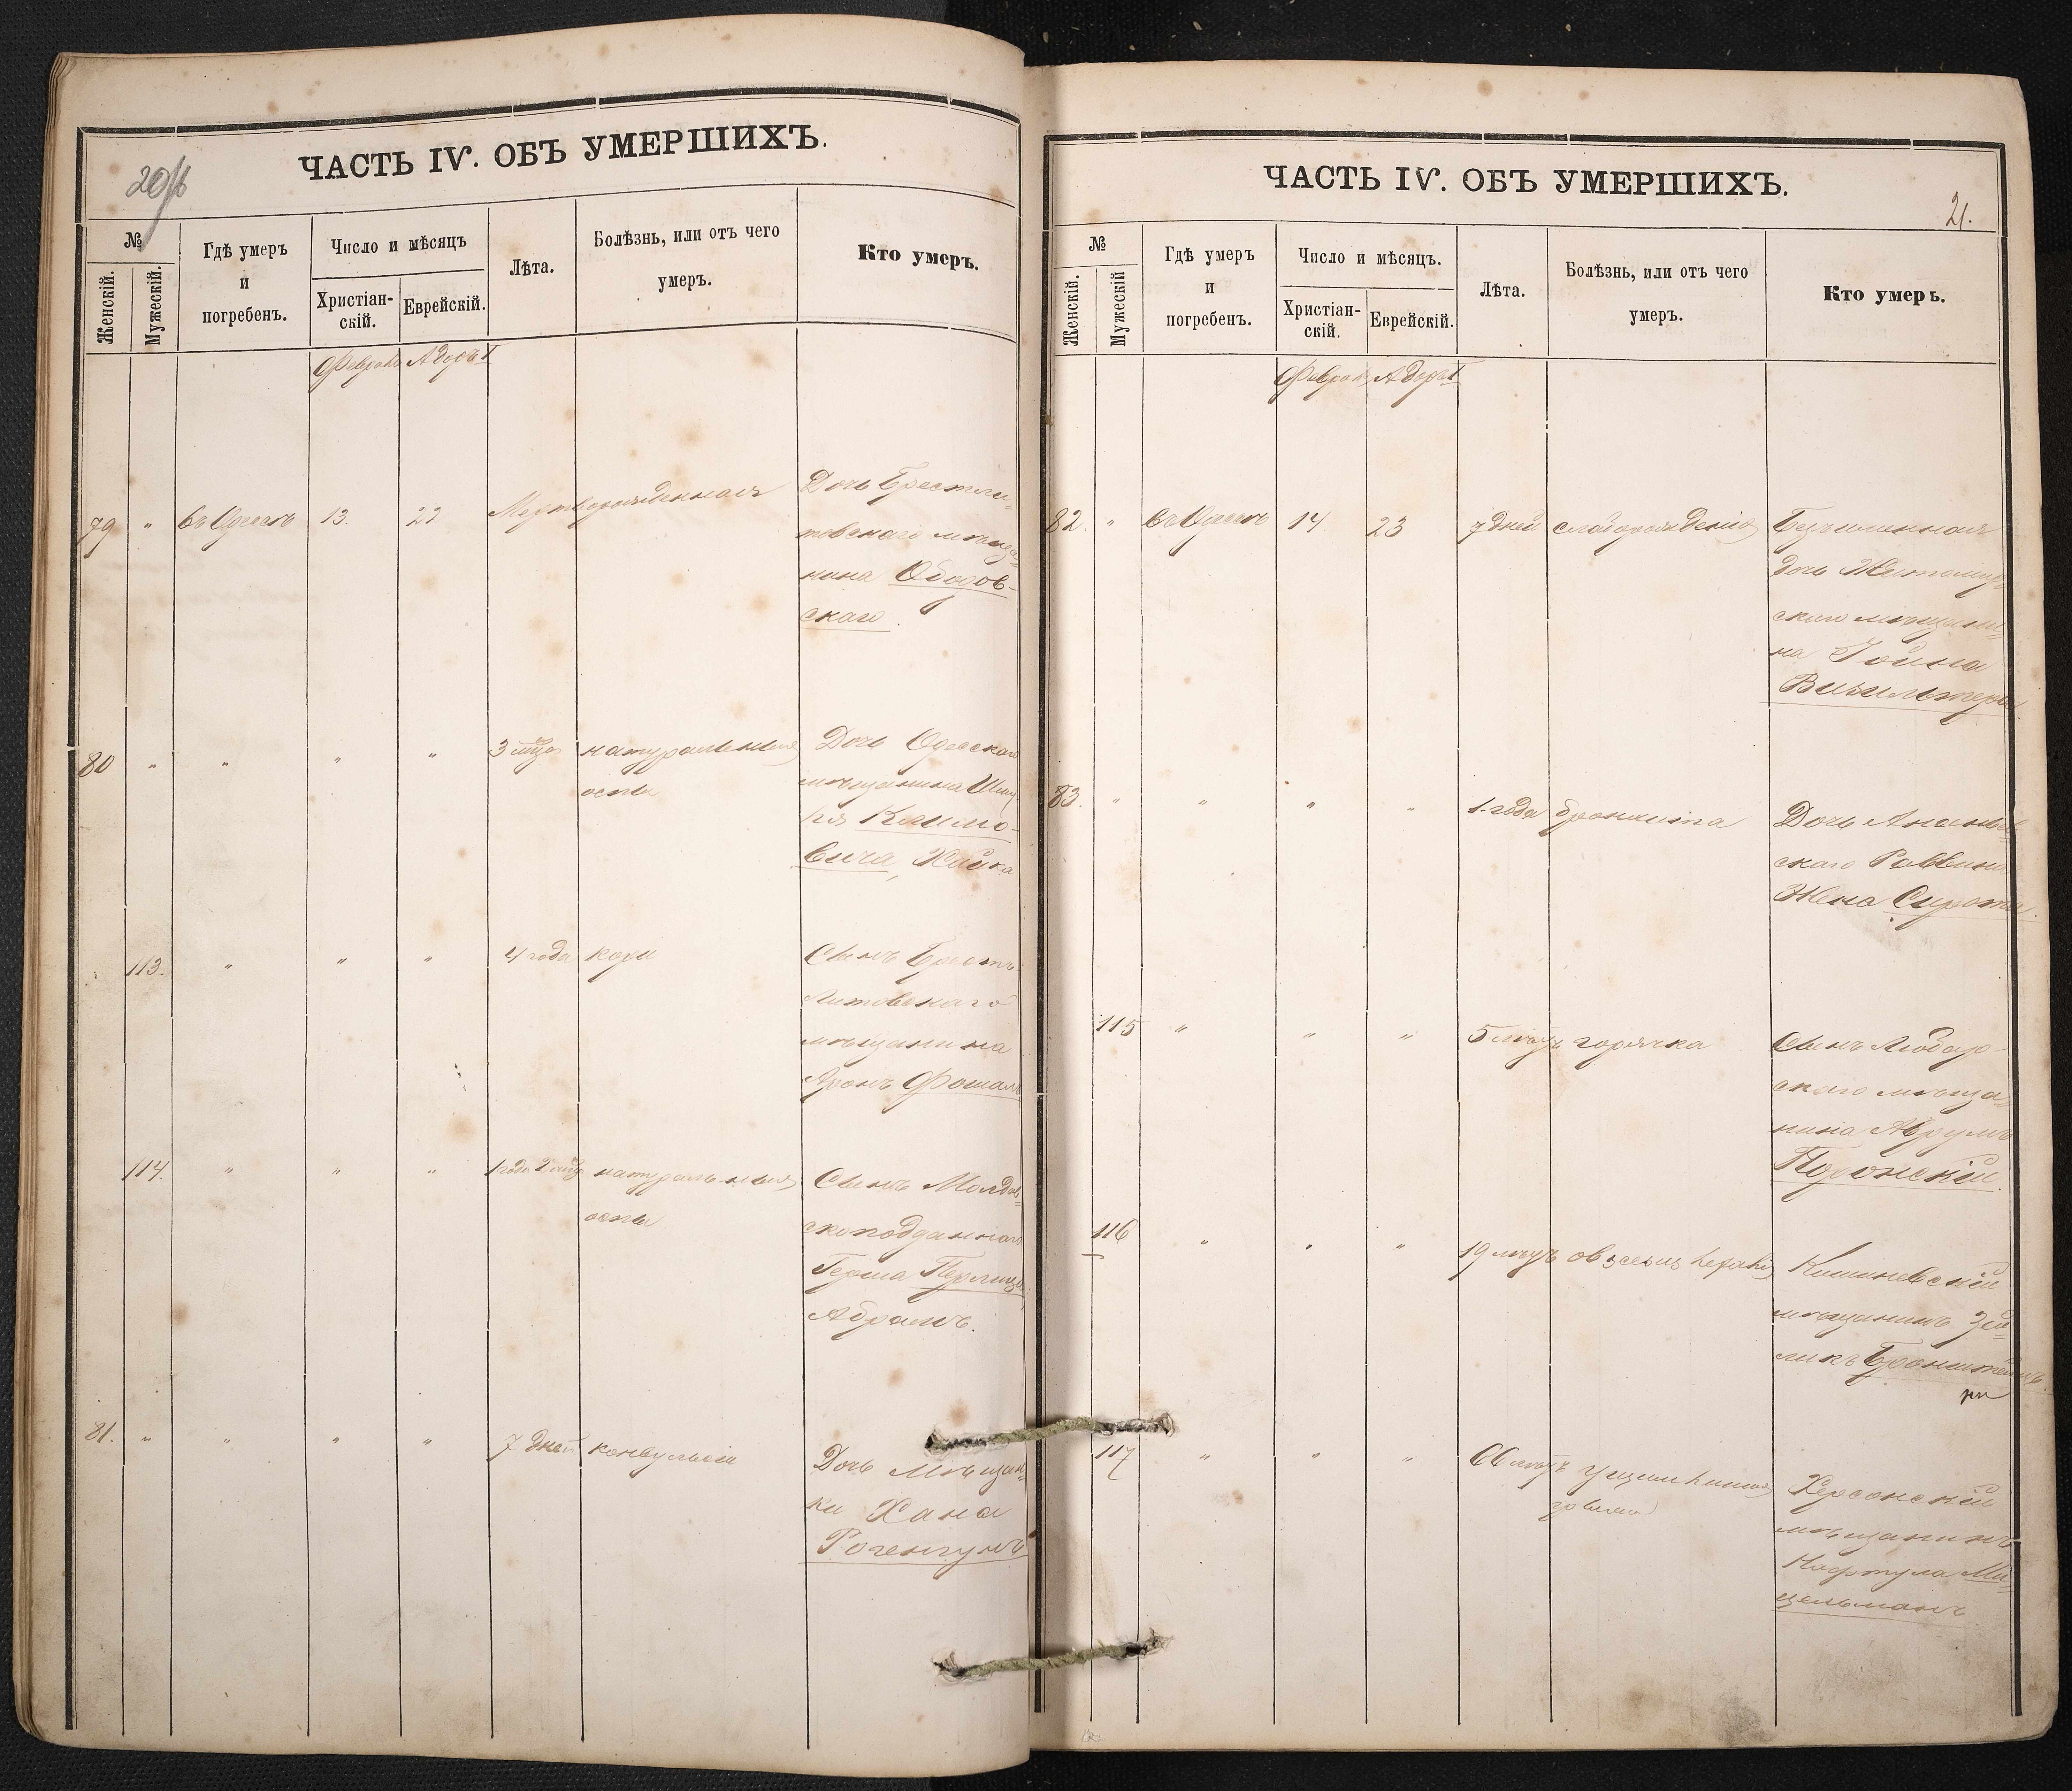 20/б
ЧАСТЬ IV. ОБЪ УМЕРШИХЪ.
№
Женскій.
Мужескій.
Гдѣ умеръ
и
погребенъ.
Число и мѣсяцъ
Христіан-
скій.
Еврейскій.
Лѣта.
Болѣзнь, или отъ чего
умеръ.
Кто умеръ.
Февраль Адаръ I
79 " въ Одессѣ 13. 22 Мертворожденная Дочь Брестли=
товскаго мѣща=
нина Оборов-
скаго.
80 " " " " 3 мѣц натуральныя Дочь Одесскаго
оспы мѣщанина
Климо-
вича, Хайка
113. " " " 4 года кори Сынъ Брестъ-
Литовскаго
мѣщанина
Аронъ Фошаль
114 " " " натуральныя Сынъ Молдав=
оспы скоподданнаго
Герша Перлица
Абрамъ.
81. " " " " 7 дней конвульсіи Дочь Мѣщан=
ки Хана
Розенгунъ
ЧАСТЬ IV. ОБЪ УМЕРШИХЪ.
21.
№
Женскій.
Мужескій
Гдѣ умеръ
и
погребенъ.
Число и мѣсяцъ.
Христіан-
скій.
Еврейскій.
Лѣта.
Болѣзнь, или отъ чего
умеръ.
Кто умеръ.
Февраль Адаръ I
82. " въ Одессѣ 14. 23 7 дней Безъименная
дочь Житомир=
скаго мѣщани=
на Гойна
83. " " " " 1 года бронхита Дочь Ананьев=
скаго Раввина
Жена Сирота.
115 " " " 5 горячка Сынъ Любар-
скаго мѣща=
нина Аврумъ
Поронскій.
116 " " " 19 Кишиневскій
мѣщанинъ Зей=
ликъ Бронштейнъ.
117 " " " 66 ущемленія Херсонскій
мѣщанинъ
Нафтула Ми=
цельманъ